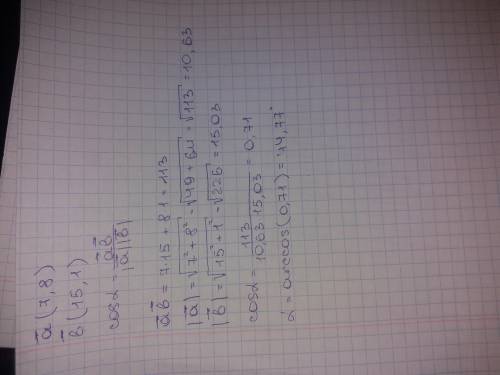 a⃗ (7, 8)
b⃗ (15, 1)
cosα = a⃗b⃗ / |a⃗||b⃗|
a⃗b⃗ = 7·15 + 8·1 = 113
|a⃗| = √(7² + 8²) = √(49 + 64) = √113 = 10,63
|b⃗| = √(15² + 1²) = √226 = 15,03
cosα = 113 / 10,63·15,03 = 0,71
α = arccos(0,71) = 44,77°